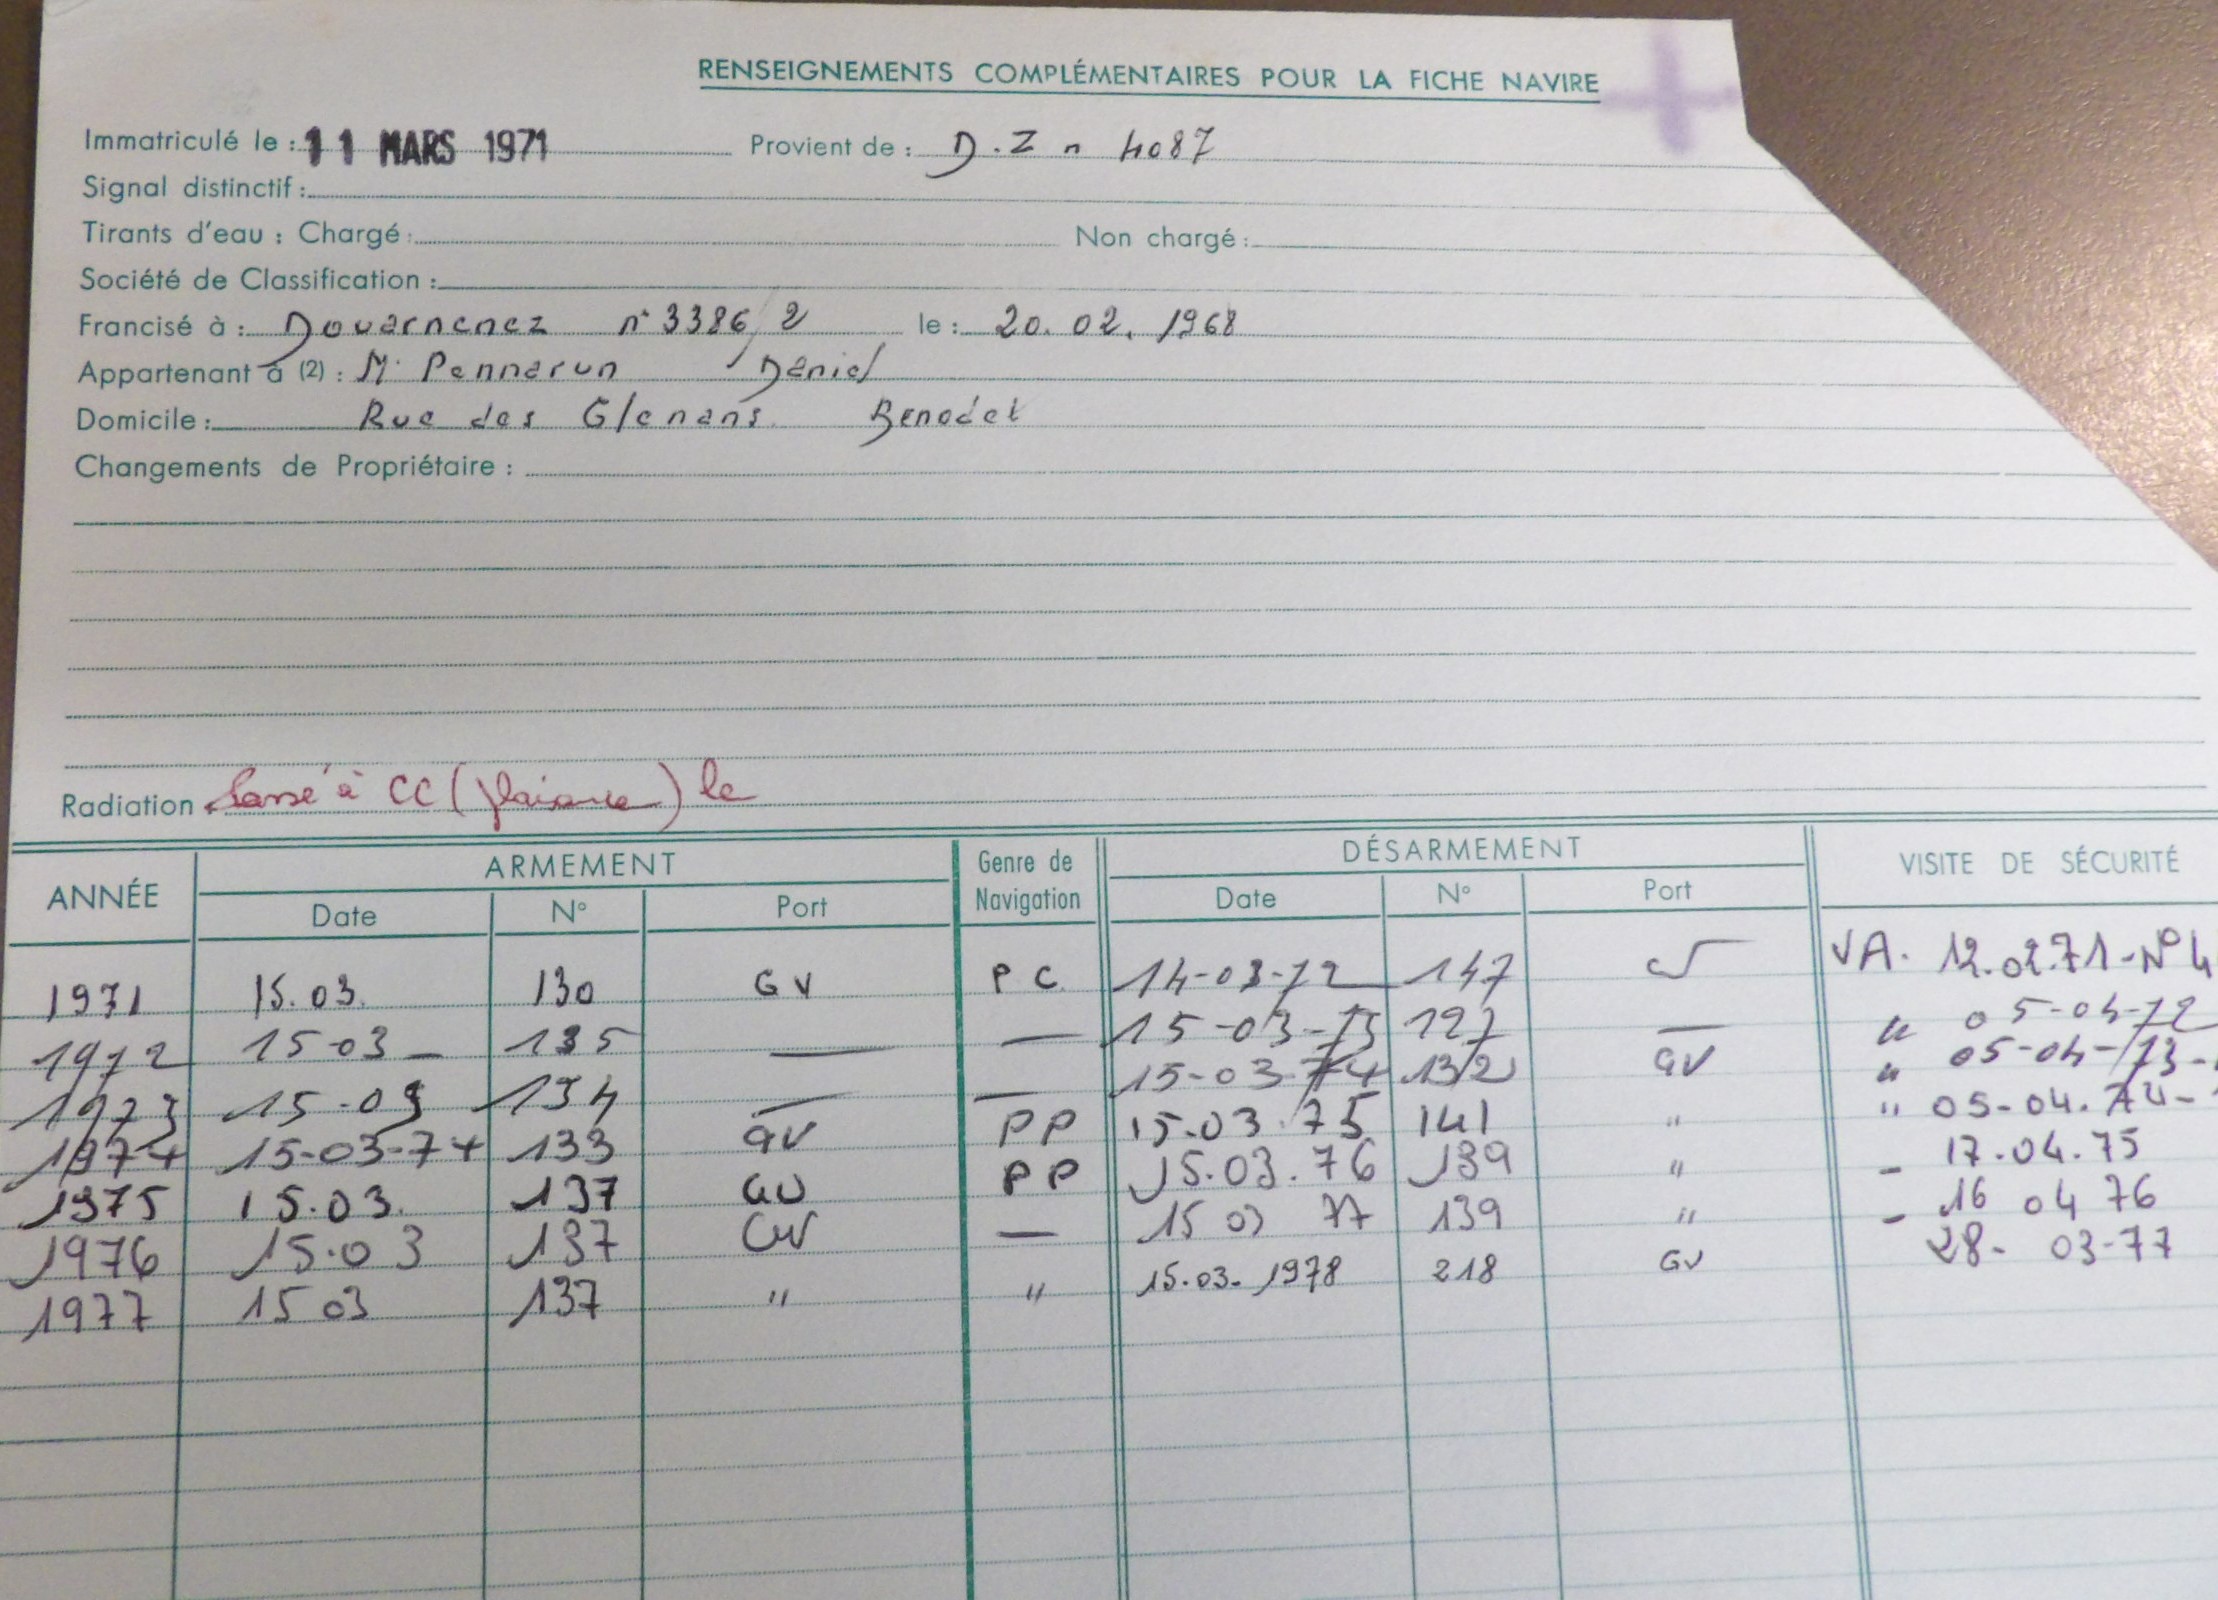 RENSEIGNEMENTS COMPLÉMENTAIRES POUR LA FICHE NAVIRE
Immatriculé le : 11 MARS 1971 Provient de : D.Z n 4087
Signal distinctif :
Tirants d'eau : Chargé : Non chargé :
Société de Classification :
Francisé à : Douarnenez n° 3386/2 le : 20.02.1968
Appartenant à (2) : M. Pennarun Daniel
Domicile : Rue des Glenans Benodet
Changements de Propriétaire :
Radiation Passé à CC (plaisance) le
ANNÉE ARMEMENT Genre de Navigation DÉSARMEMENT VISITE DE SÉCURITÉ
Date N° Port Date N° Port
1971 15.03. 130 GV P C. 14-03-72 147 VA. 12.02.71-N° 4
1972 15-03 — 135 — — 15-03-73 127 — " 05-04-72
1973 15-03 134 — — 15-03-74 132 GV " 05-04-73-
1974 15-03-74 133 GV PP 15.03.75 141 " " 05-04.74-
1975 15.03. 137 GV PP 15.03.76 139 " - 17.04.75
1976 15.03 137 GV — 15 03 77 139 " - 16 04 76
1977 15 03 137 " " 15.03.1978 218 GV 28- 03-77